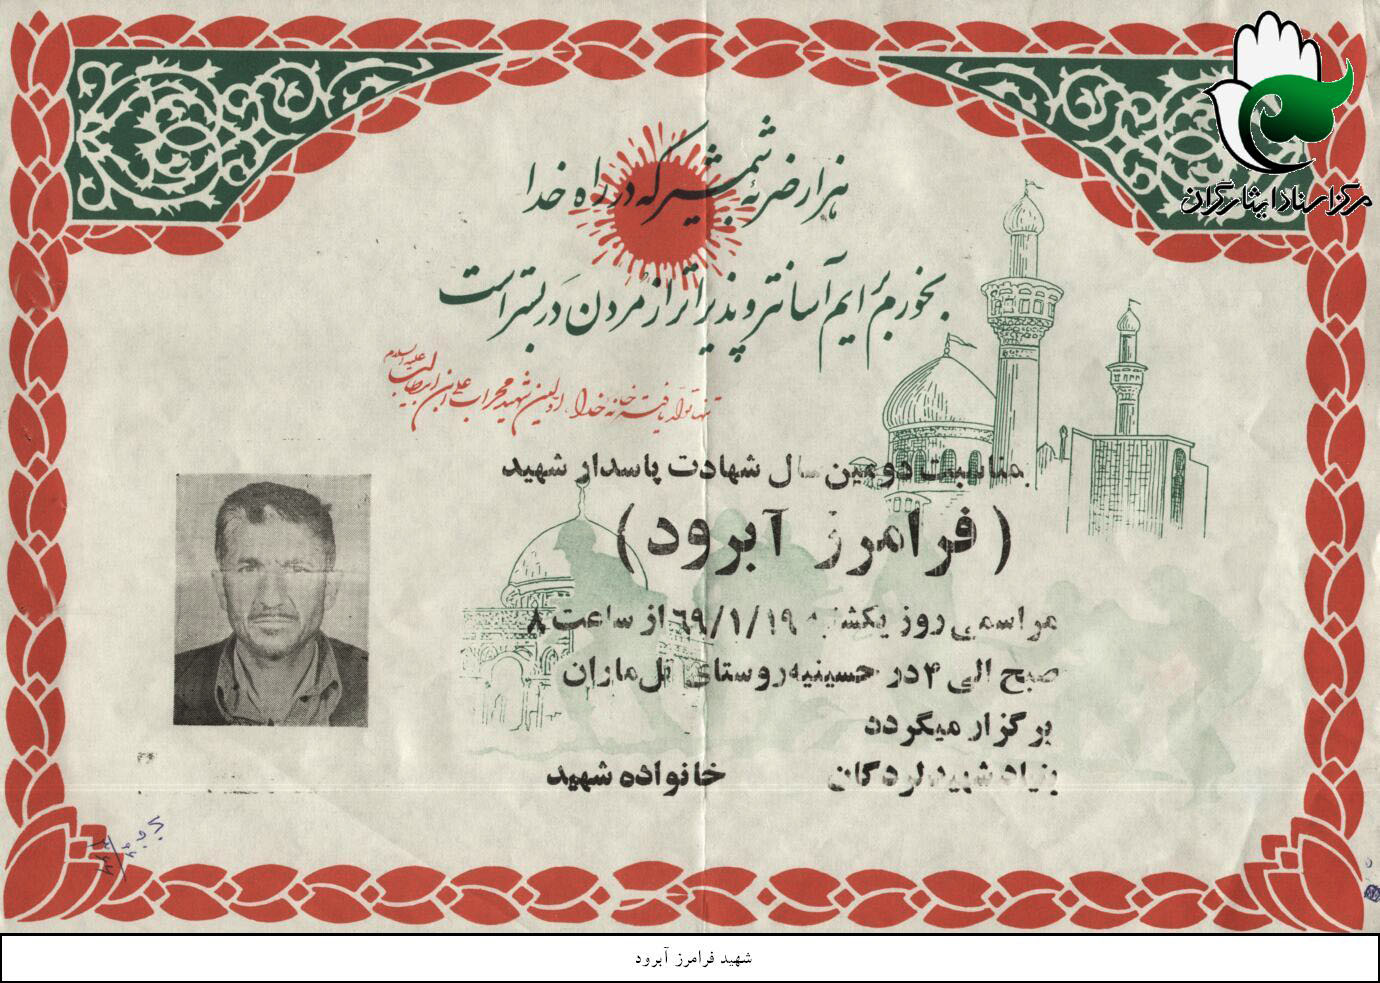 مرکز اسناد ایثارگران
هزار ضربهٔ شمشیر که در راه خدا
بخورم برایم آسانتر و پذیراتر از مردن در بستر است
تنها تولد یافته خانه خدا، اولین شهید محراب علی ابن ابیطالب علیه السلام
بمناسبت دومین سال شهادت پاسدار شهید
( فرامرز آبرود )
مراسمی روز یکشنبه ۶۹/۱/۱۹ از ساعت ۸
صبح الی ۴ در حسینیه روستای تل ماران
برگزار میگردد
بنیاد شهید لردگان خانواده شهید
شهید فرامرز آبرود